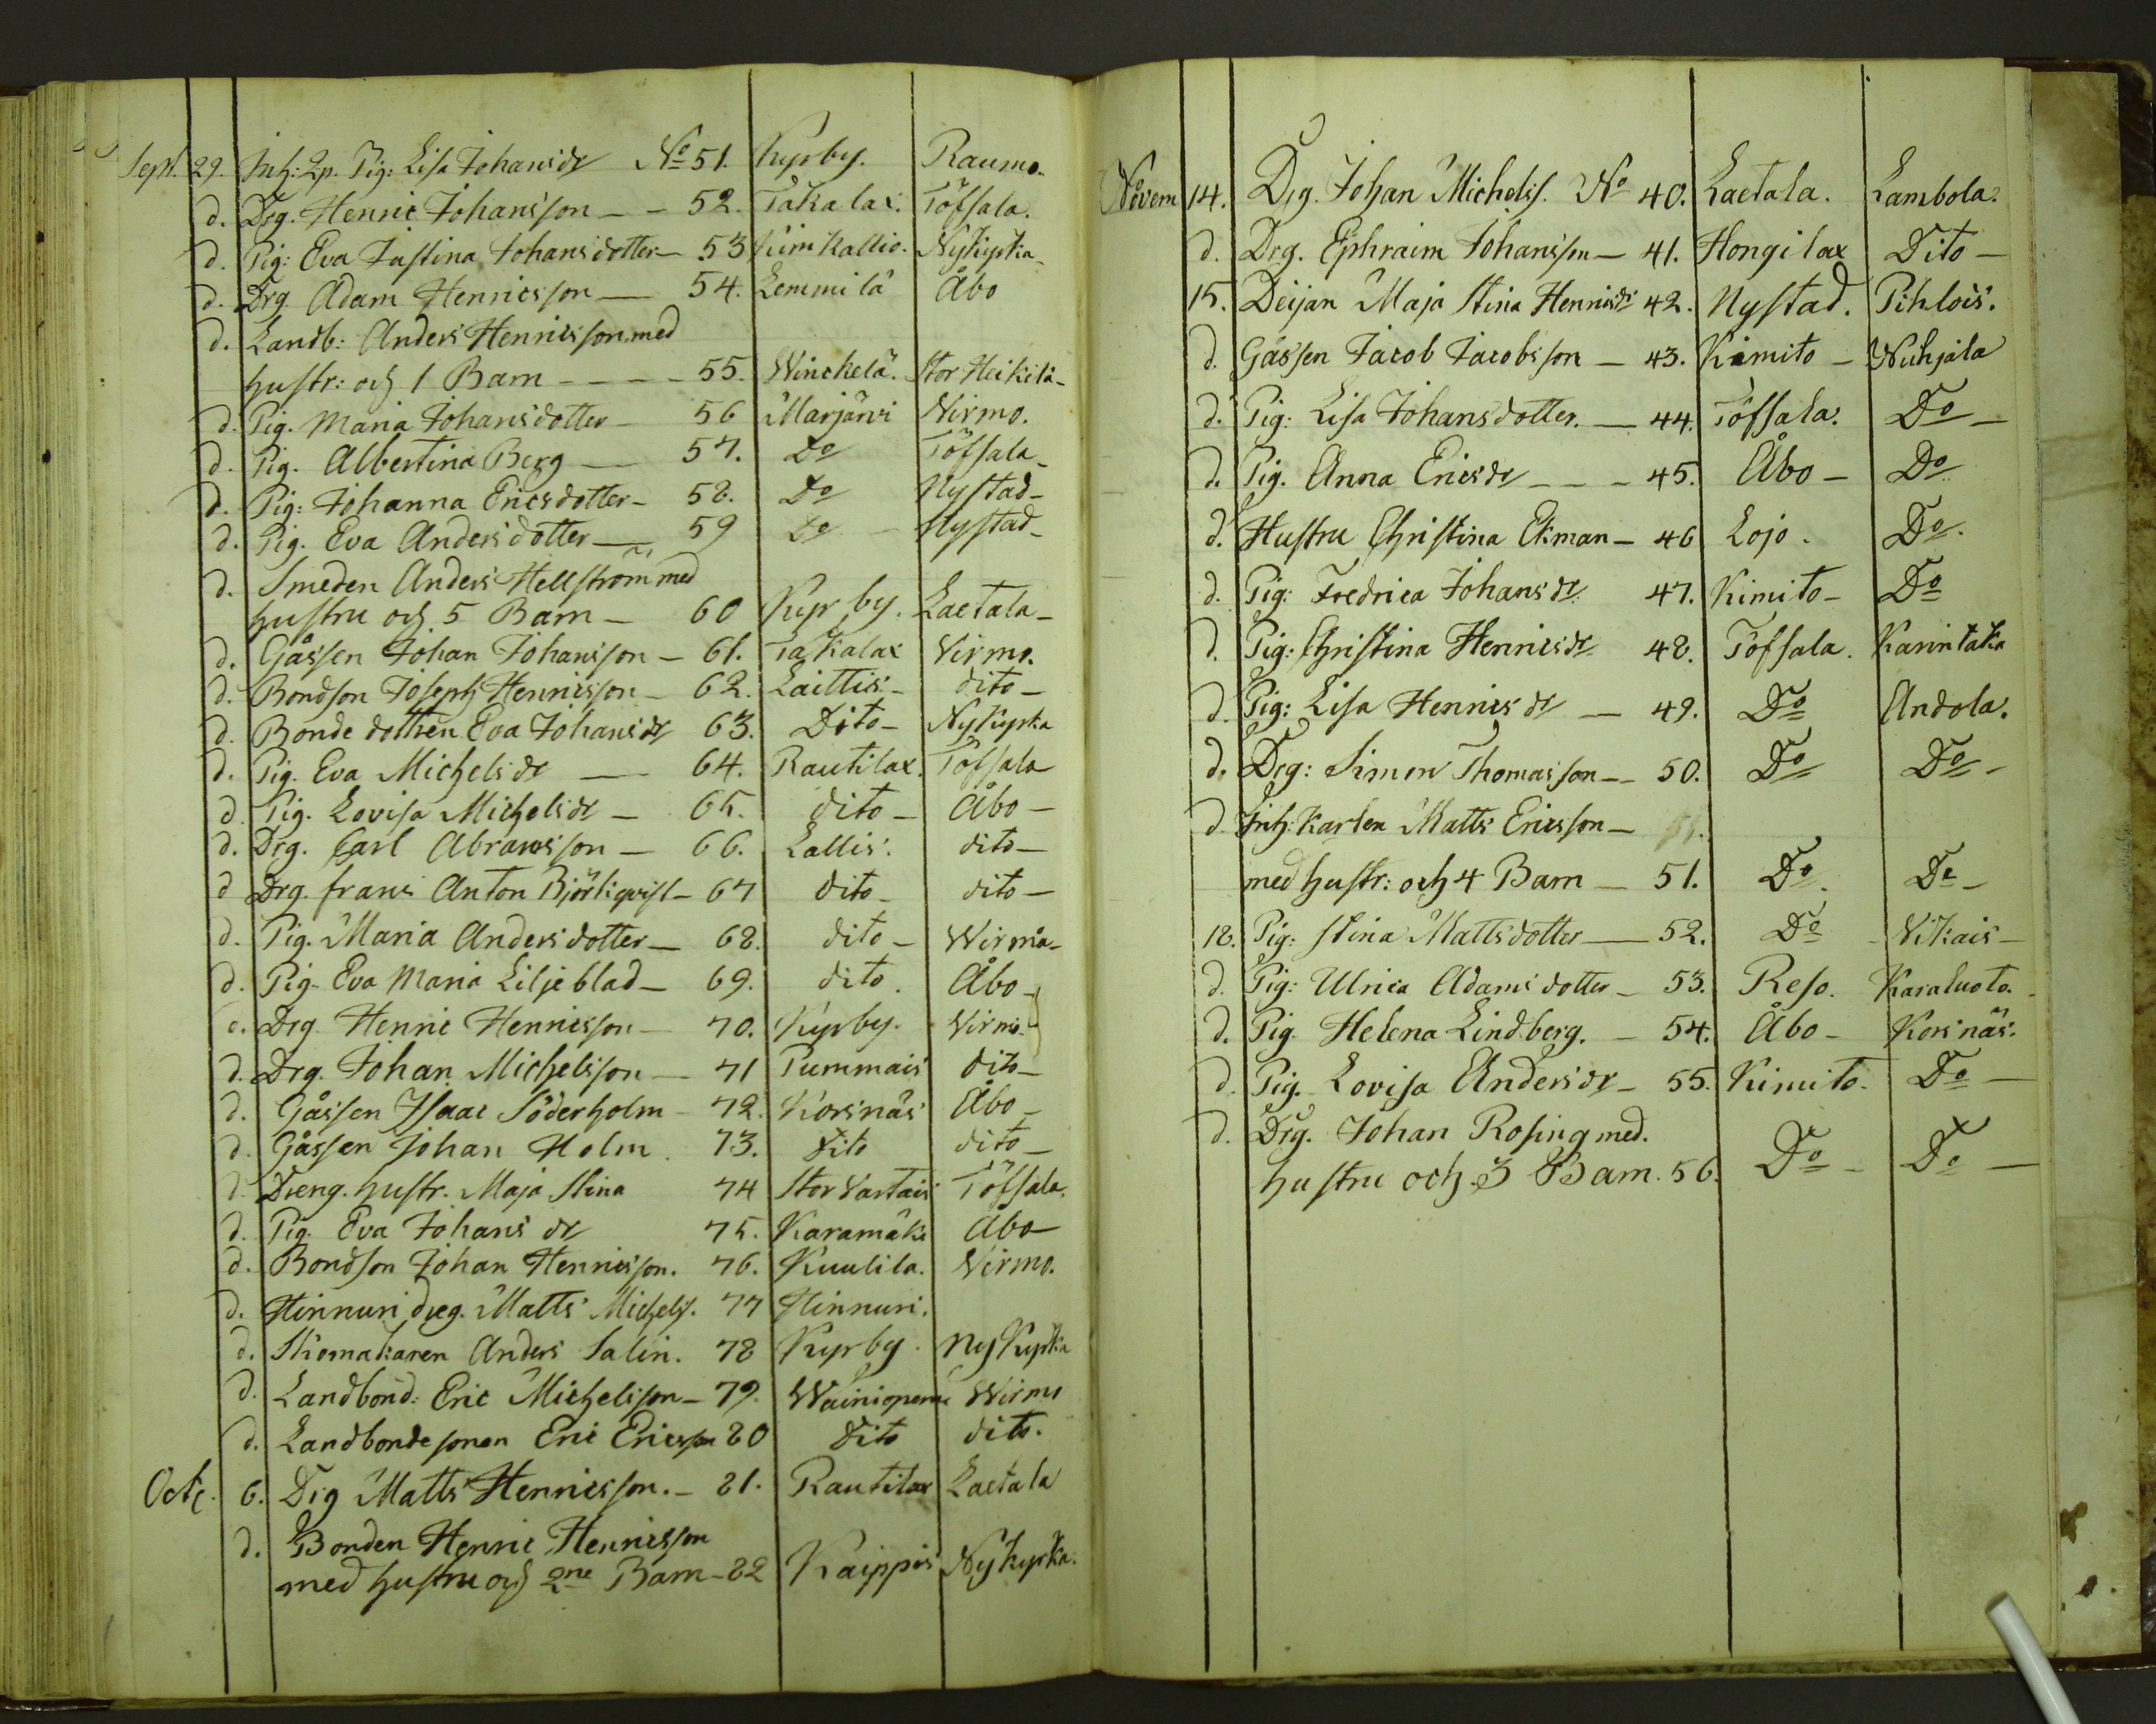 Sept. 29. Inh: Qp. Pig: Lisa Johansdr No 51. Kyrby. Raumo.
d. Drg. Henric Johansson - - 52. Takalax. Töfsala.
d. Pig: Eva Justina Johansdotter - 53 Kimkallio. Nykyrka
d. Drg Adam Henricsson - 54. Lemmilä Åbo
d. Landb: Anders Henricsson med
hustr: och 1 Barn - - - - 55. Winckelä. Stor Heikilä -
d. Pig. Maria Johansdotter - 56 Marjärvi Virmo.
d. Pig. Albertina Berg - 57. Do Töfsala -
d. Pig: Johanna Ericsdotter - 58. Do Nystad -
d. Pig. Eva Andersdotter - 59 Do - Nystad -
d. Smeden Anders Hellström med
hustru och 5 Barn - 60 Kyrby. Laetala -
d. Gåssen Johan Johansson - 61. Takalax Virmo.
d. Bondson Joseph Henricsson - 62. Laittis - dito -
d. Bonde dottren Eva Johansdr 63. Dito - Nykyrka
d. Pig. Eva Michelsdr - 64. Rautilax. Töfsala
d. Pig. Lovisa Michelsdr - 65. dito - Åbo -
d. Drg. Carl Abramsson - 66. Lallis. dito -
d Drg. frans Anton Björkqvist - 67 dito - dito -
d. Pig. Maria Andersdotter - 68. dito - Wirmo -
d. Pig. Eva Maria Liljeblad - 69. dito. Åbo -
d. Drg Henric Henricsson - 70. Kyrby. Virmo -
d. Drg. Johan Michelsson - 71 Pummais dito -
d. Gåssen Isaac Söderholm - 72. Korsnäs Åbo -
d. Gåssen Johan Holm. 73. dito dito -
d. Dreng. hustr. Maja Stina 74 Stor Vartais Töfsala.
d. Pig. Eva Johansdr 75. Karamäki Åbo -
d. Bondson Johan Henricsson. 76. Kuulila. Virmo.
d. Hinnuri dreg. Matts Michels. 77 Hinnuri.
d. Skomakaren Anders Salin. 78 Kyrby. Nykyrka
d. Landbond: Eric Michelsson - 79. Wäiniopernä Wirmo
d. Landbondesonen Eric Ericsson 80 dito dito.
Octc. 6. Drg Matts Henricsson. - 81. Rautilax Laetala
d. Bonden Henric Henricsson
med hustru och 2ne Barn - 82 Kaippis Nykyrka.
Novem 14. Drg. Johan Michels. No 40. Laetala. Lambola.
d. Drg. Ephraim Johansson - 41. Hongilax Dito -
15. Deijan Maja Stina Henricsdr 42. Nystad. Pihlois.
d. Gåssen Jacob Jacobsson - 43. Kimito - Nuhjala
d. Pig: Lisa Johansdotter. - 44. Töfsala. Do -
d. Pig. Anna Ericsdr - - - 45. Åbo - Do
d. Hustru Christina Ekman - 46 Lojo. Do.
d. Pig: Fredrica Johansdr 47. Kimito - Do
d. Pig: Christina Henricsdr 48. Töfsala. Karintaka
d. Pig: Lisa Henricsdr - 49. Do Andola.
d. Drg: Simon Thomasson - - 50. Do Do -
d Inh: Karlen Matts Ericsson -
med hustr: och 4 Barn - 51. Do. Do -
18. Pig: Stina Mattsdotter - 52. Do - Vikais -
d. Pig: Ulrica Adamsdotter - 53. Reso. Karaluoto.
d. Pig. Helena Lindberg. - 54. Åbo - Korsnäs.
d. Pig. Lovisa Andersdr - 55. Kimito. Do -
d. Drg. Johan Rosing med.
hustru och 3 Barn. 56. Do - Do -